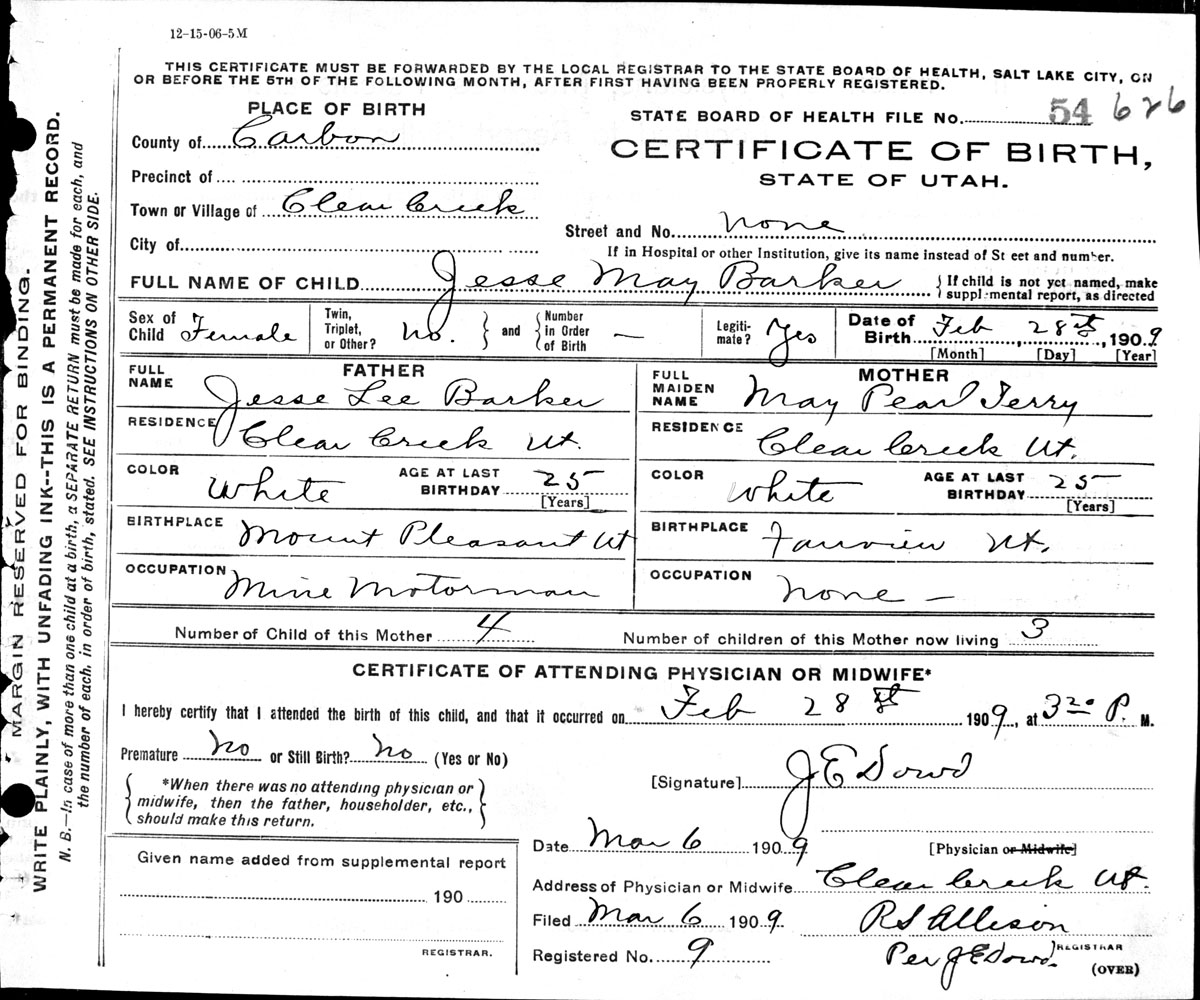 12-15-06-5M
THIS CERTIFICATE MUST BE FORWARDED BY THE LOCAL REGISTRAR TO THE STATE BOARD OF HEALTH, SALT LAKE CITY, ON
OR BEFORE THE 5TH OF THE FOLLOWING MONTH, AFTER FIRST HAVING BEEN PROPERLY REGISTERED.
PLACE OF BIRTH
STATE BOARD OF HEALTH FILE NO. 54 626
County of Carbon
CERTIFICATE OF BIRTH,
STATE OF UTAH.
Precinct of
Town or Village of Clear Creek
Street and No. none
City of
If in Hospital or other Institution, give its name instead of St eet and number.
FULL NAME OF CHILD Jesse May Barker { If child is not yet named, make
supplemental report, as directed
Sex of Child Female
Twin, Triplet, or Other? No. } and { Number in Order of Birth —
Legitimate? Yes
Date of Birth Feb 28th, 1909
[Month] [Day] [Year]
FATHER
FULL NAME Jesse Lee Barker
RESIDENCE Clear Creek Ut.
COLOR White AGE AT LAST BIRTHDAY 25
[Years]
BIRTHPLACE Mount Pleasant Ut
OCCUPATION Mine Motorman
MOTHER
FULL MAIDEN NAME May Pearl Terry
RESIDENCE Clear Creek Ut.
COLOR White AGE AT LAST BIRTHDAY 25
[Years]
BIRTHPLACE Fairview Ut.
OCCUPATION None —
Number of Child of this Mother 4 Number of children of this Mother now living 3
CERTIFICATE OF ATTENDING PHYSICIAN OR MIDWIFE*
I hereby certify that I attended the birth of this child, and that it occurred on Feb 28th 1909, at 3 20 P. M.
Premature No or Still Birth? No (Yes or No)
{ *When there was no attending physician or
midwife, then the father, householder, etc.,
should make this return. }
[Signature] J E Dowd
Date Mar 6 1909 [Physician or Midwife]
Given name added from supplemental report
190
REGISTRAR.
Address of Physician or Midwife Clear Creek Ut.
Filed Mar 6 1909 R S Allison
REGISTRAR
Registered No. 9 Per J E Dowd.
(OVER)
MARGIN RESERVED FOR BINDING.
WRITE PLAINLY, WITH UNFADING INK--THIS IS A PERMANENT RECORD.
N. B.—In case of more than one child at a birth, a SEPARATE RETURN must be made for each, and
the number of each, in order of birth, stated. SEE INSTRUCTIONS ON OTHER SIDE.